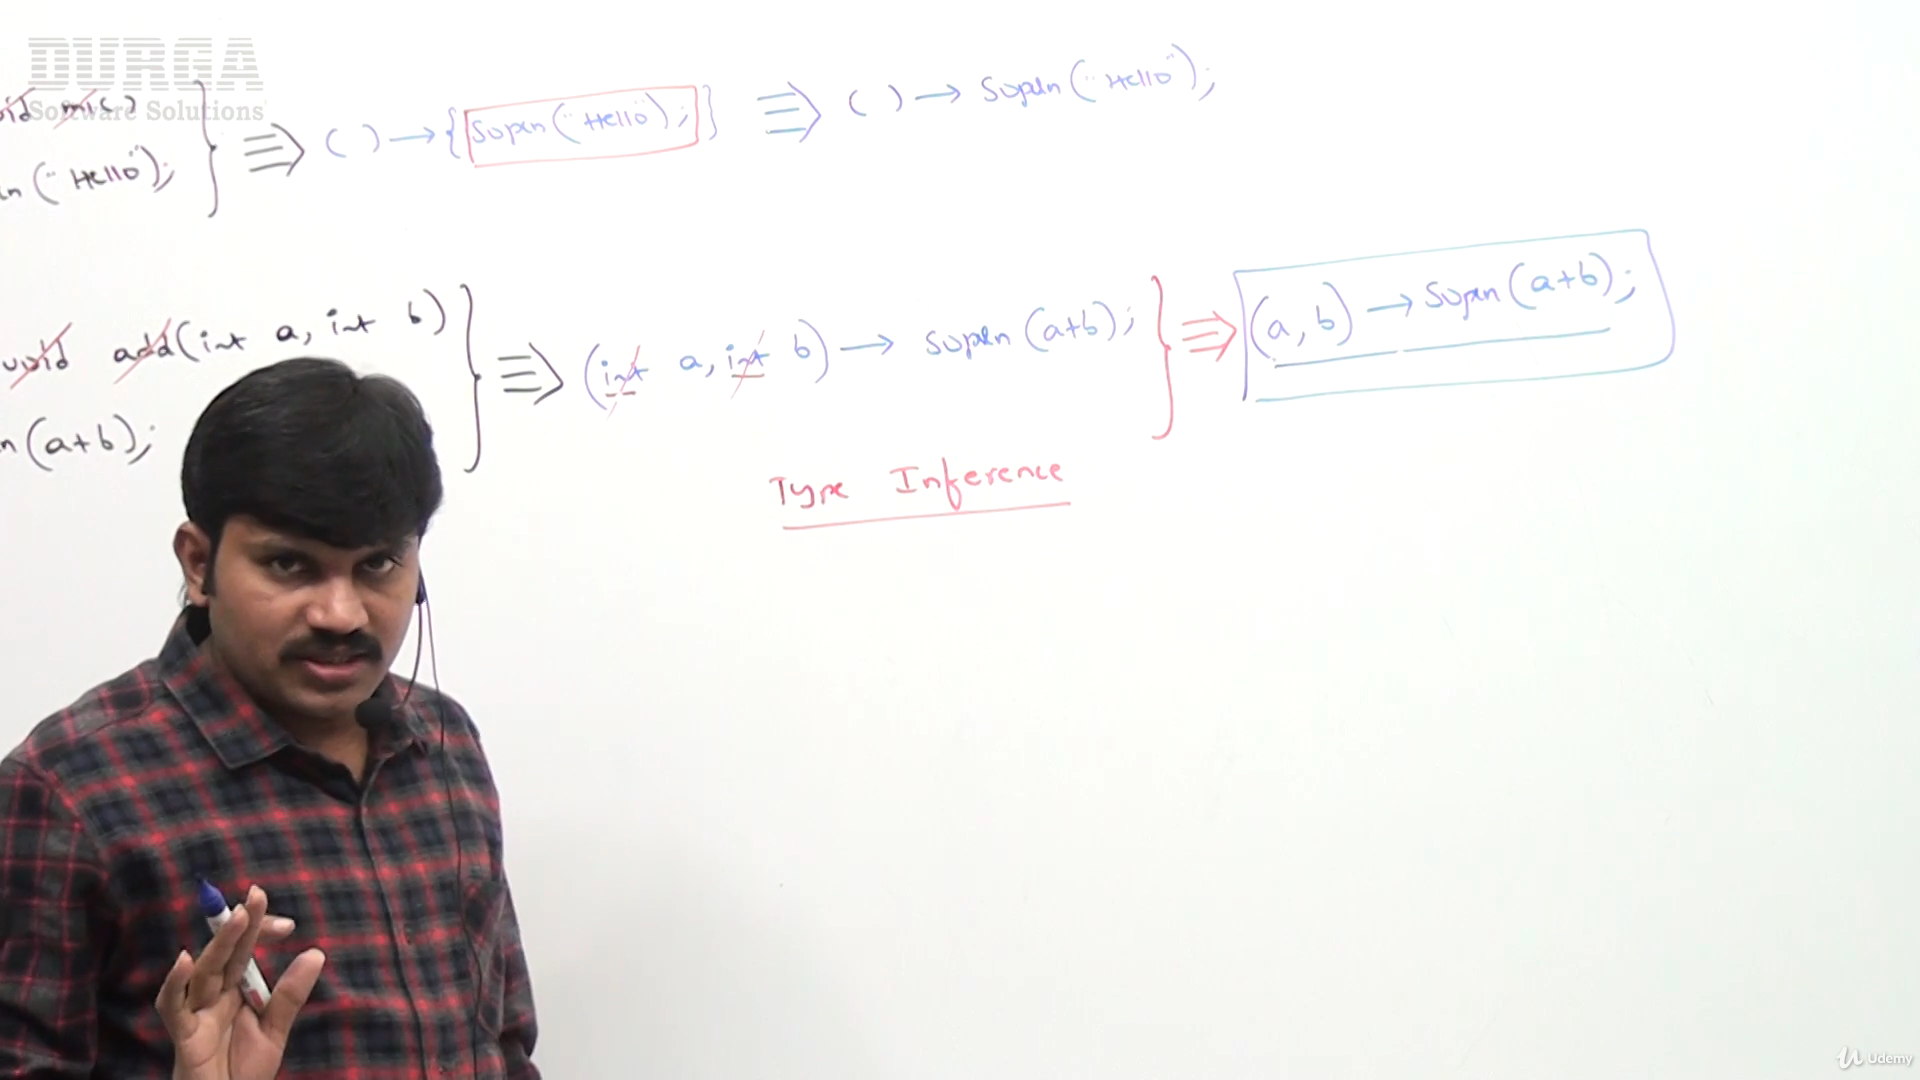 DURGA
Software Solutions
void m1() } ⇛ ( ) → { Sopln("Hello"); } ⇛ ( ) → Sopln("Hello");
ln("Hello");
void add(int a, int b) } ⇛ (int a, int b) → Sopln(a+b); } ⇛ (a, b) → Sopln(a+b);
ln(a+b);
Type Inference
Udemy